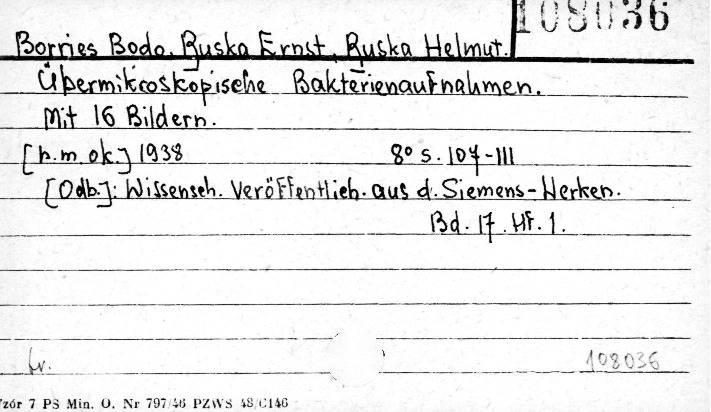 108036
Borries Bodo, Ruska Ernst, Ruska Helmut.
Übermikroskopische Bakterienaufnahmen.
Mit 16 Bildern.
[b.m. ok.] 1938 8° s. 107-111
[Odb.]: Wissensch. Veröffentlich. aus d. Siemens-Werken.
Bd. 17. Hf. 1.
108036
zór 7 PS Min. O. Nr 797/46 PZWS 48/C146